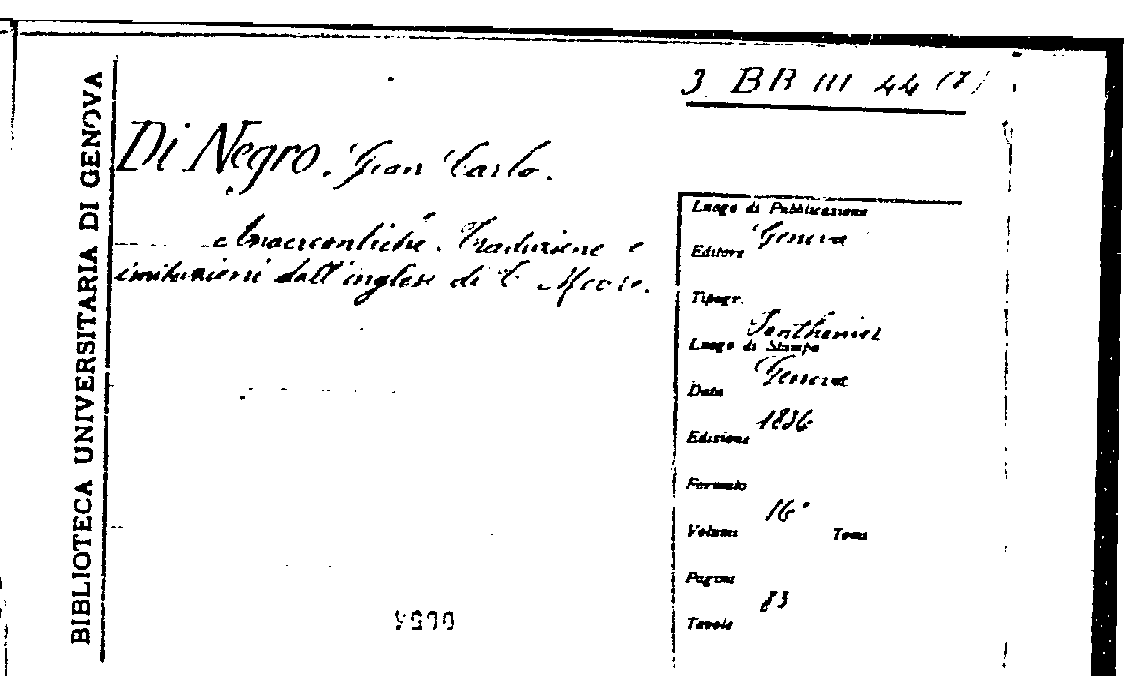 BIBLIOTECA UNIVERSITARIA DI GENOVA
3 BB III 44 (7)
Di Negro. Gian Carlo.
Anacreontiche. Traduzione e
imitazioni dall'inglese di T. Moore.
Luogo di Pubblicazione
Genova
Editore
Tipogr.
Ponthenier
Luogo di Stampa
Genova
Data
1836
Edizione
Formato
16°
Volumi Tomi
Pagine
83
Tavole